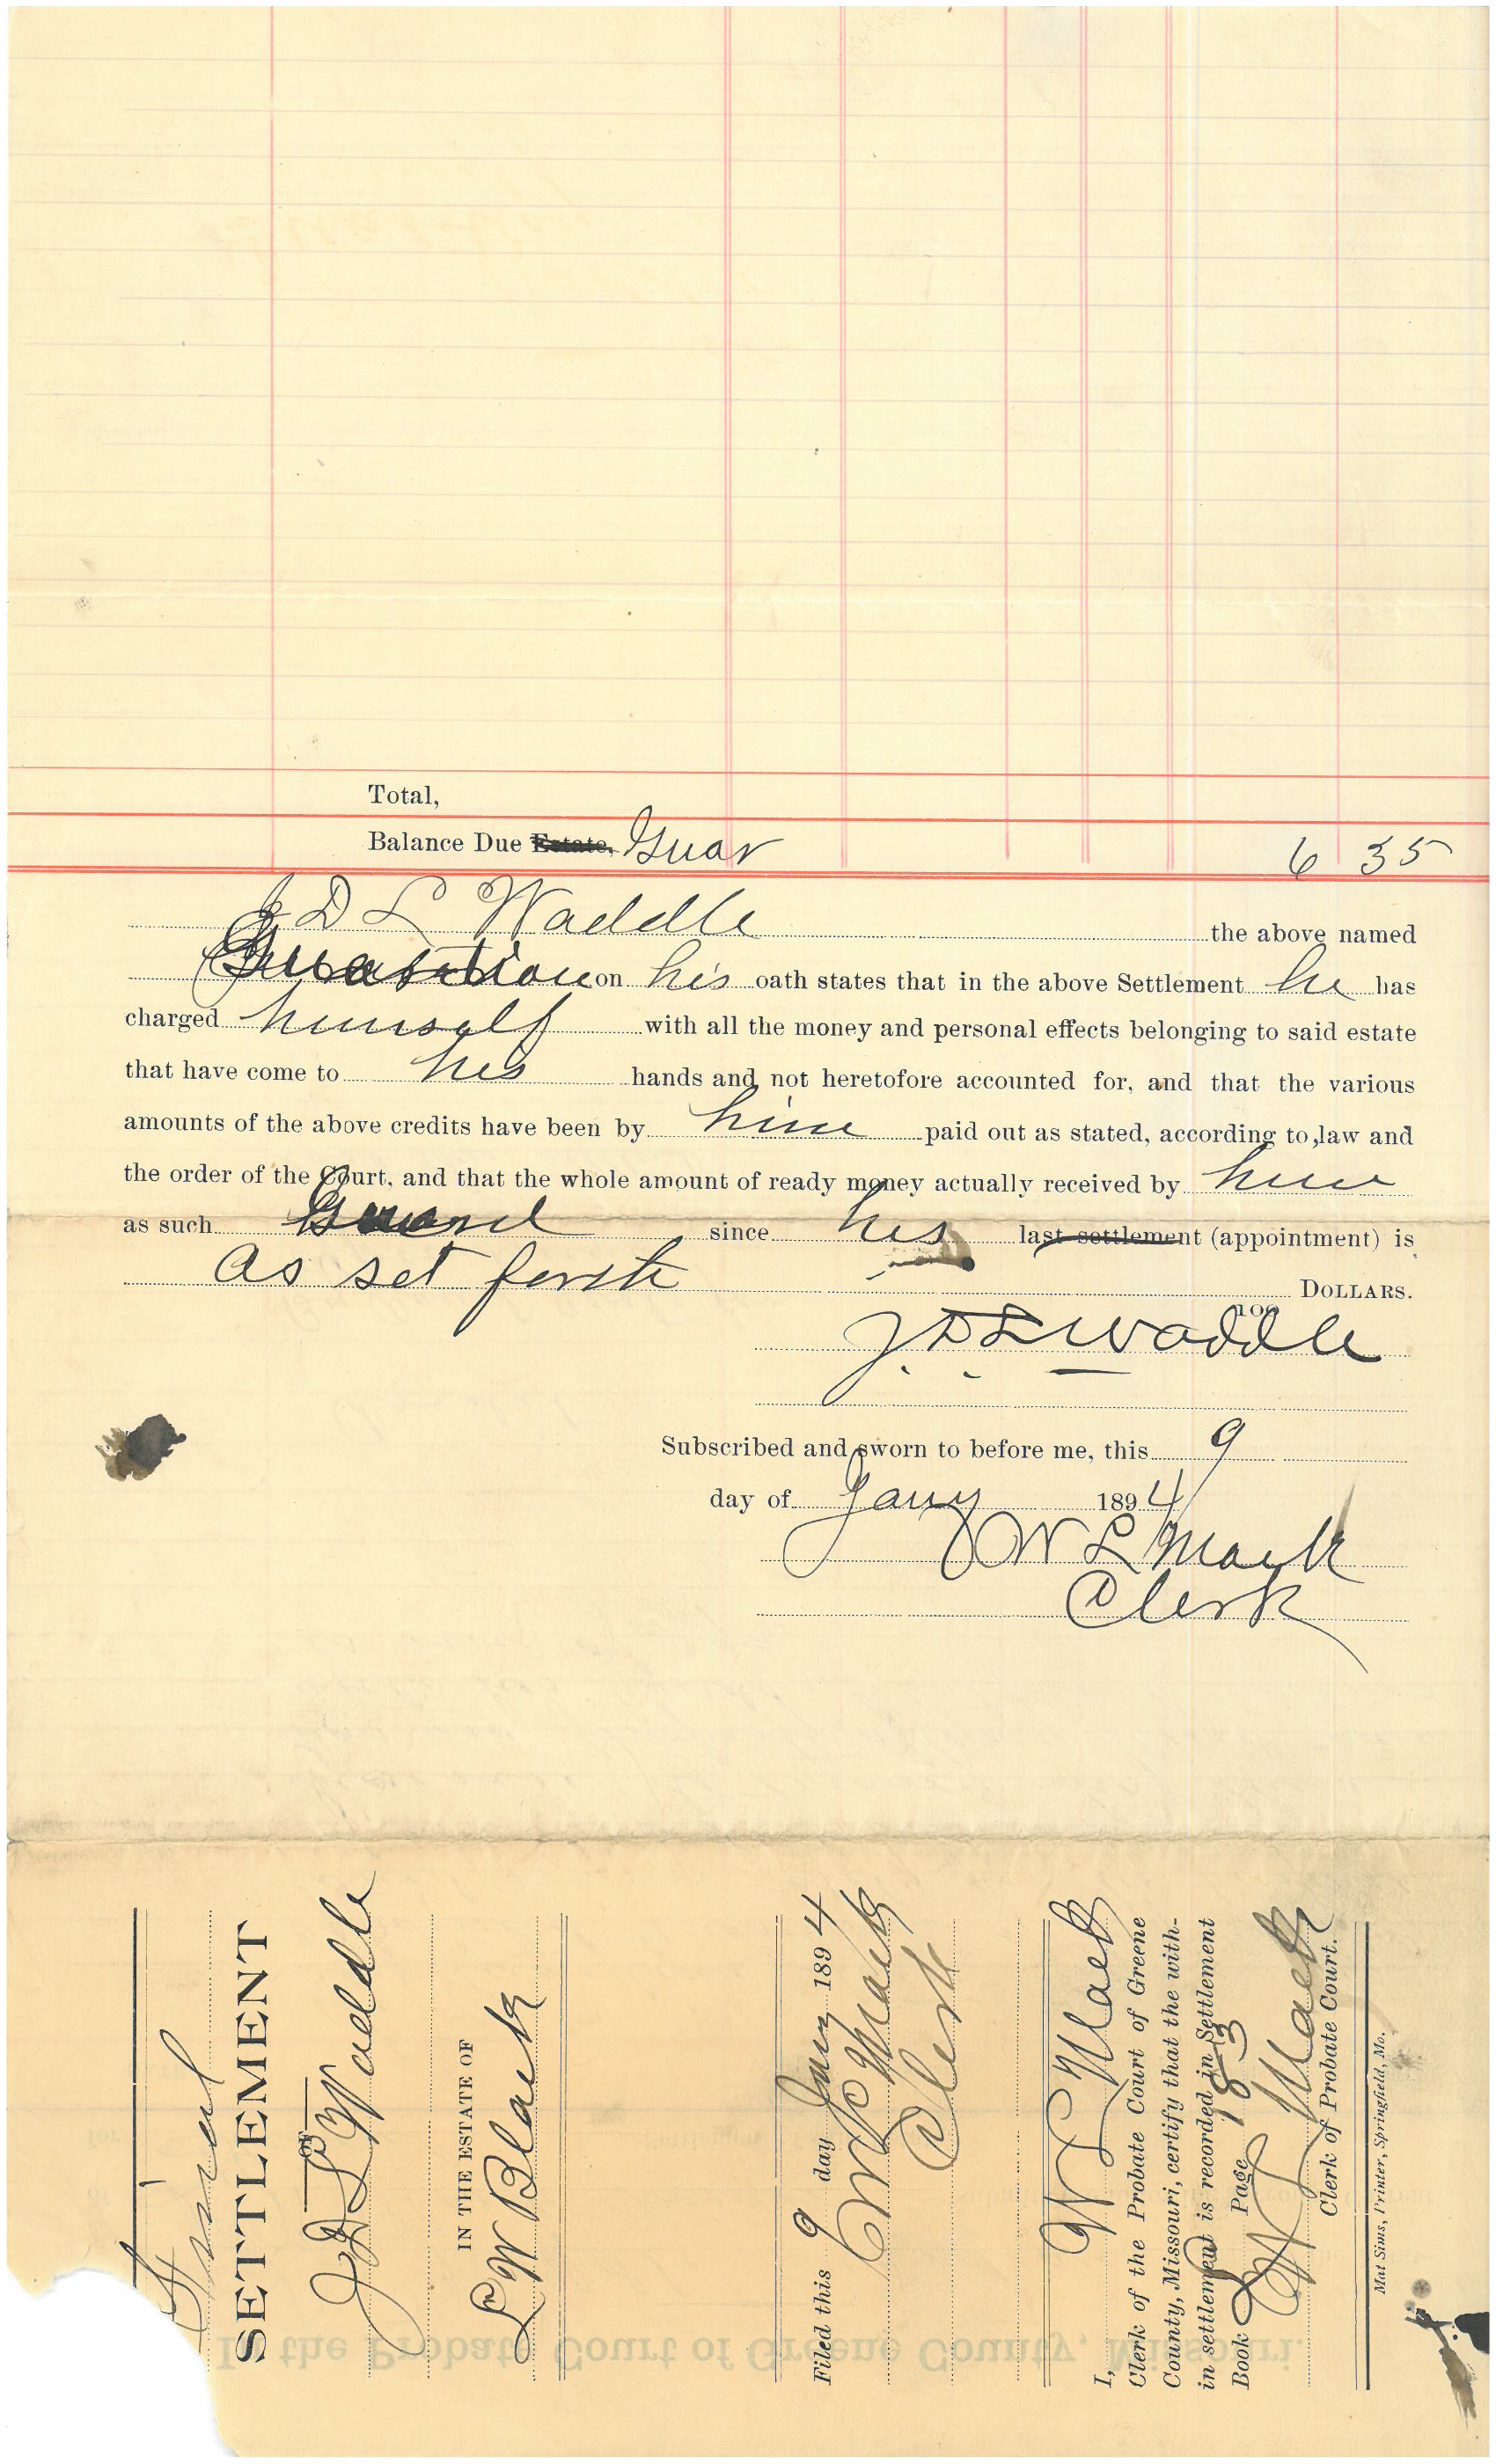 Total,
Balance Due Estate, Guar 6 35
J D L Waddle the above named
on his oath states that in the above Settlement he has
charged himself with all the money and personal effects belonging to said estate
that have come to his hands and not heretofore accounted for, and that the various
amounts of the above credits have been by him paid out as stated, according to law and
the order of the Court, and that the whole amount of ready money actually received by him
as such since his last settlement (appointment) is
as set forth DOLLARS.
100
J. D. L Waddle
Subscribed and sworn to before me, this 9
day of Jany 1894
W L Mack
Clerk
Final
SETTLEMENT
OF
J D L Waddle
IN THE ESTATE OF
L W Black
Filed this 9 day Jany 1894
W L Mack
Clerk
I, W L Mack
Clerk of the Probate Court of Greene
County, Missouri, certify that the with-
in settlement is recorded in Settlement
Book Page 183
W L Mack
Clerk of Probate Court.
Mat Sims, Printer, Springfield, Mo.
In the Probate Court of Greene County, Missouri.